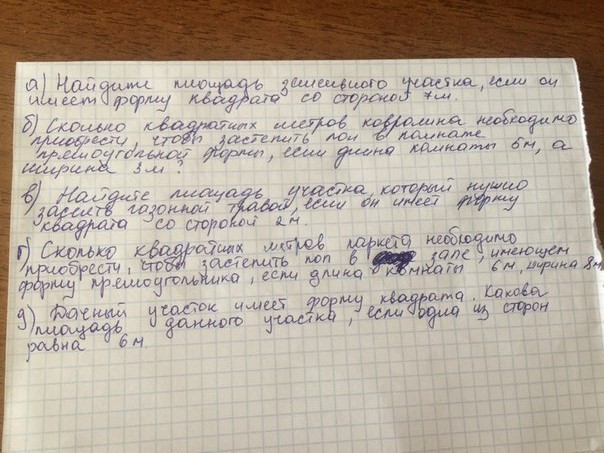 а) Найдите площадь земельного участка, если он
имеет форму квадрата со стороной 7м.
б) Сколько квадратных метров ковролина необходимо
приобрести, чтобы застелить пол в комнате
прямоугольной формы, если длина комнаты 5м, а
ширина 3м?
в) Найдите площадь участка, который нужно
засеять газонной травой, если он имеет форму
квадрата со стороной 2м.
г) Сколько квадратных метров паркета необходимо
приобрести, чтобы застелить пол в зале, имеющем
форму прямоугольника, если длина комнаты 6м, ширина 8м
д) Дачный участок имеет форму квадрата. Какова
площадь данного участка, если одна из сторон
равна 6м.